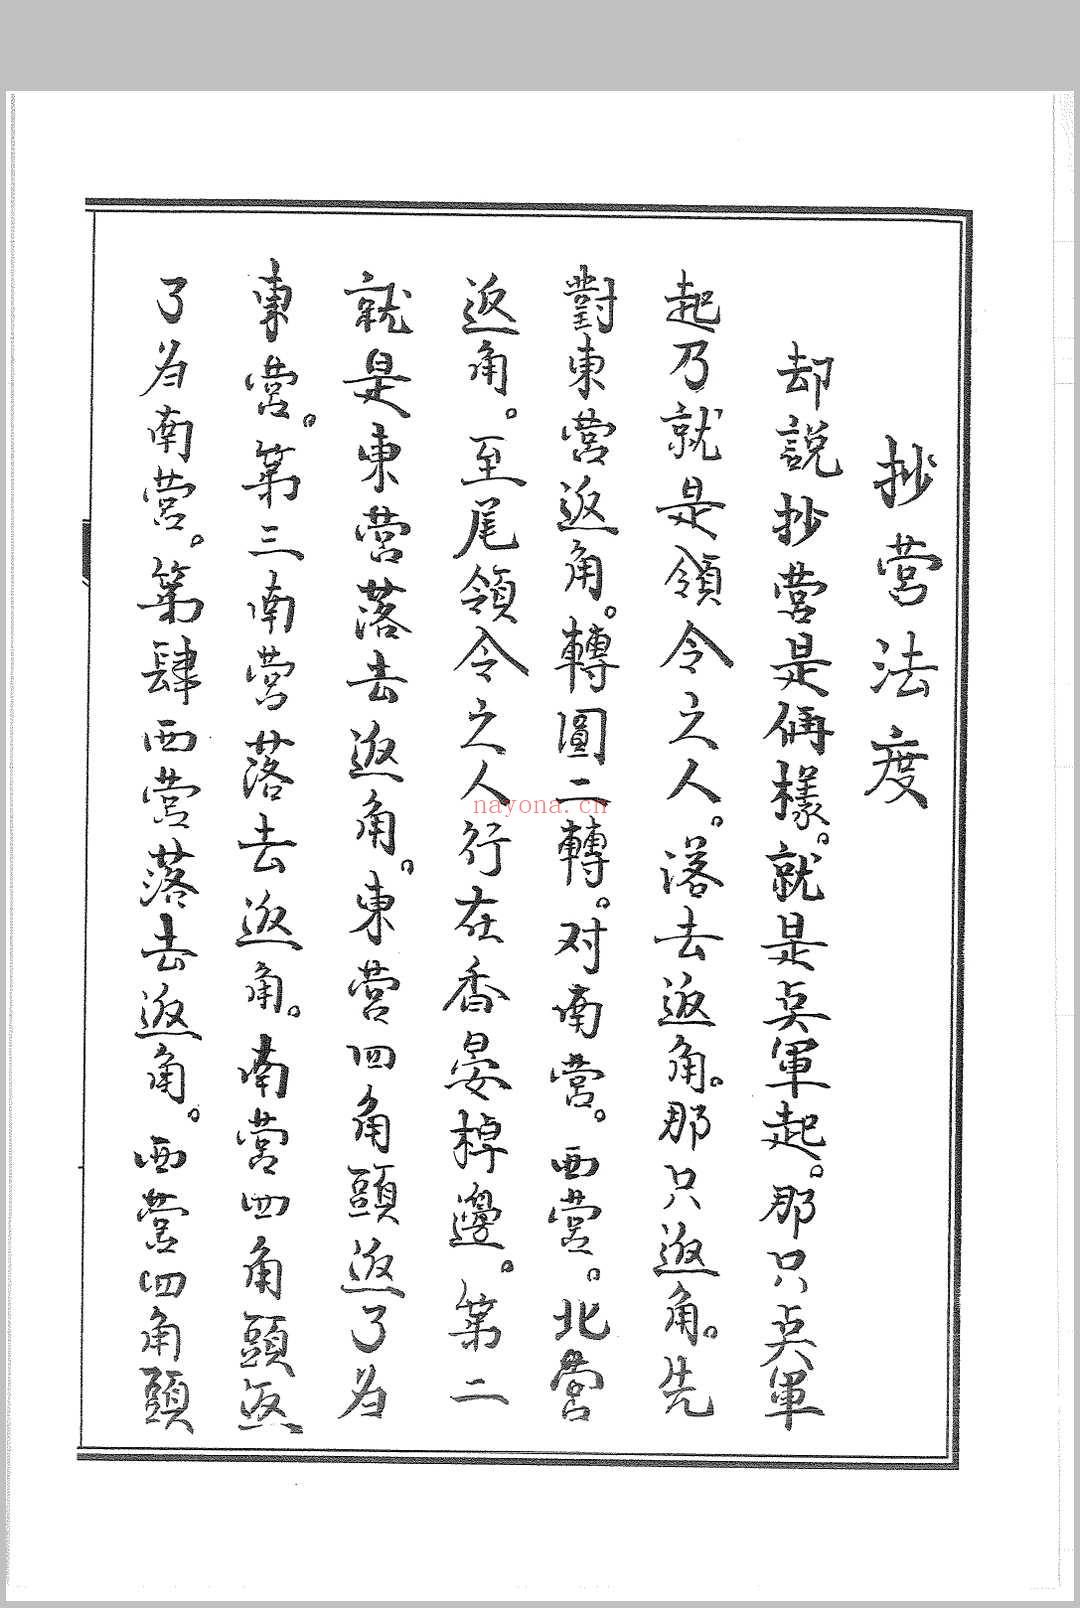 抄營法度
却說抄營是俩樣。就是点軍起。那只点軍
起乃就是領令之人。落去返角。那只返角。先
對東營返角。轉圓二轉。对南营。西营。北营
返角。至尾領令之人行在香晏棹邊。第二
就是東营落去返角。東营四角頭返了为
東营。第三南营落去返角。南营四角頭返
了为南营。第肆西营落去返角。西营四角頭
nayona.cn